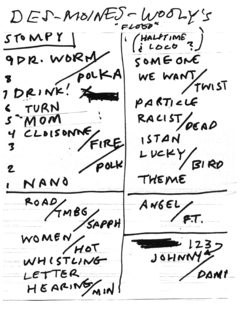 DES-MOINES-WOOLY's
"FLOOD"
STOMPY
9 DR. WORM
8 POLKA
7 DRINK!
6 TURN
5 MOM
4 CLOISONNE
3 /FIRE
2 /POLK
1 NANO
ROAD
/TMBG
/SAPPH
WOMEN
/HOT
WHISTLING
LETTER
HEARING/MIN
(HALFTIME
& LOCO ?)
SOMEONE
WE WANT
/TWIST
PARTICLE
RACIST
/DEAD
ISTAN
LUCKY
/BIRD
THEME
ANGEL
/F.T.
123
JOHNNY
/DAMN